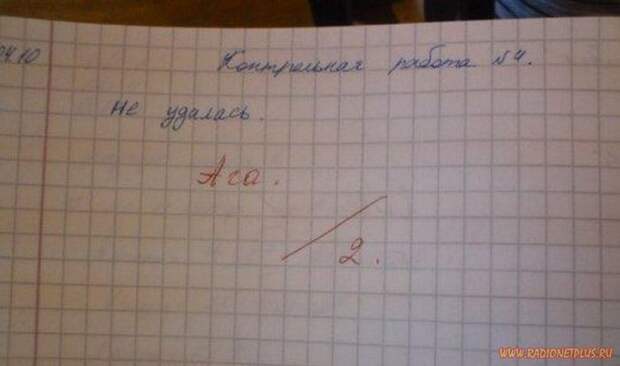 04.10 Контрольная работа №4.
Не удалась.
Ага.
2.
WWW.RADIONETPLUS.RU